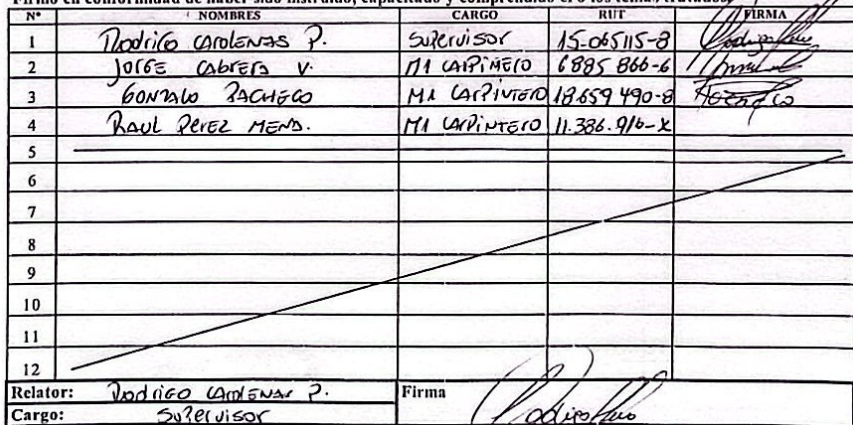 Firmo en conformidad de haber sido instruido, capacitado y comprendido el o los temas tratados.
Nº NOMBRES CARGO RUT FIRMA
1 Rodrigo CARDENAS P. Supervisor 15.065115-8
2 JORGE CABRERA V. M1 CARPINTERO 6885 866-6
3 GONZALO PACHECO M1 CARPINTERO 18.659 490-8 Pacheco
4 RAUL PEREZ MEND. M1 CARPINTERO 11.386.916-X
5
6
7
8
9
10
11
12
Relator: Rodrigo CARDENAS P. Firma
Cargo: Supervisor